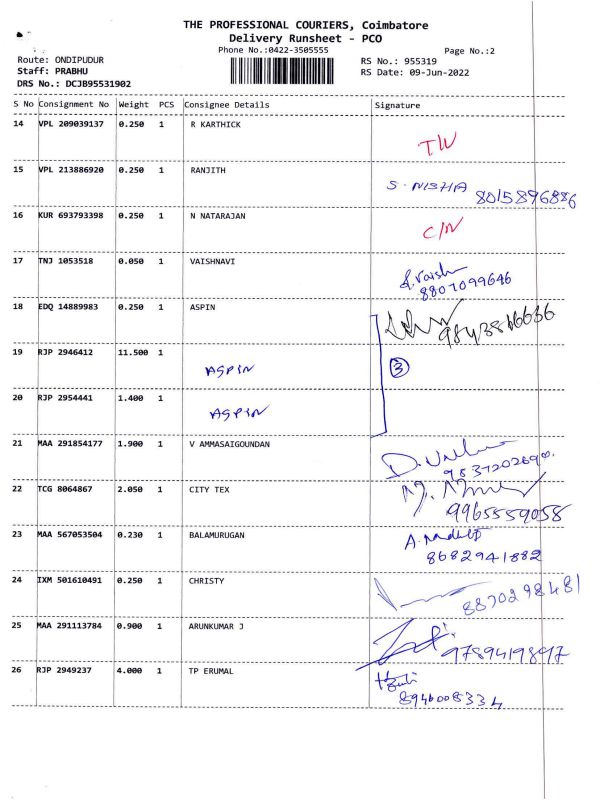 THE PROFESSIONAL COURIERS, Coimbatore
Delivery Runsheet - PCO
Phone No.:0422-3505555
Page No.:2
Route: ONDIPUDUR
RS No.: 955319
Staff: PRABHU
RS Date: 09-Jun-2022
DRS No.: DCJB95531902
S No Consignment No Weight PCS Consignee Details Signature
14 VPL 209039137 0.250 1 R KARTHICK
15 VPL 213886920 0.250 1 RANJITH S. NISHA 8015896886
16 KUR 693793398 0.250 1 N NATARAJAN C/N
17 TNJ 1053518 0.050 1 VAISHNAVI
8807099646
18 EDQ 14889983 0.250 1 ASPIN
19 RJP 2946412 11.500 1 ASPIN 3
20 RJP 2954441 1.400 1 ASPIN
21 MAA 291854177 1.900 1 V AMMASAIGOUNDAN
22 TCG 8064867 2.050 1 CITY TEX
9965559058
23 MAA 567053504 0.230 1 BALAMURUGAN
8682941882
24 IXM 501610491 0.250 1 CHRISTY 8870298481
25 MAA 291113784 0.900 1 ARUNKUMAR J
9789419897
26 RJP 2949237 4.000 1 TP ERUMAL
8946008334